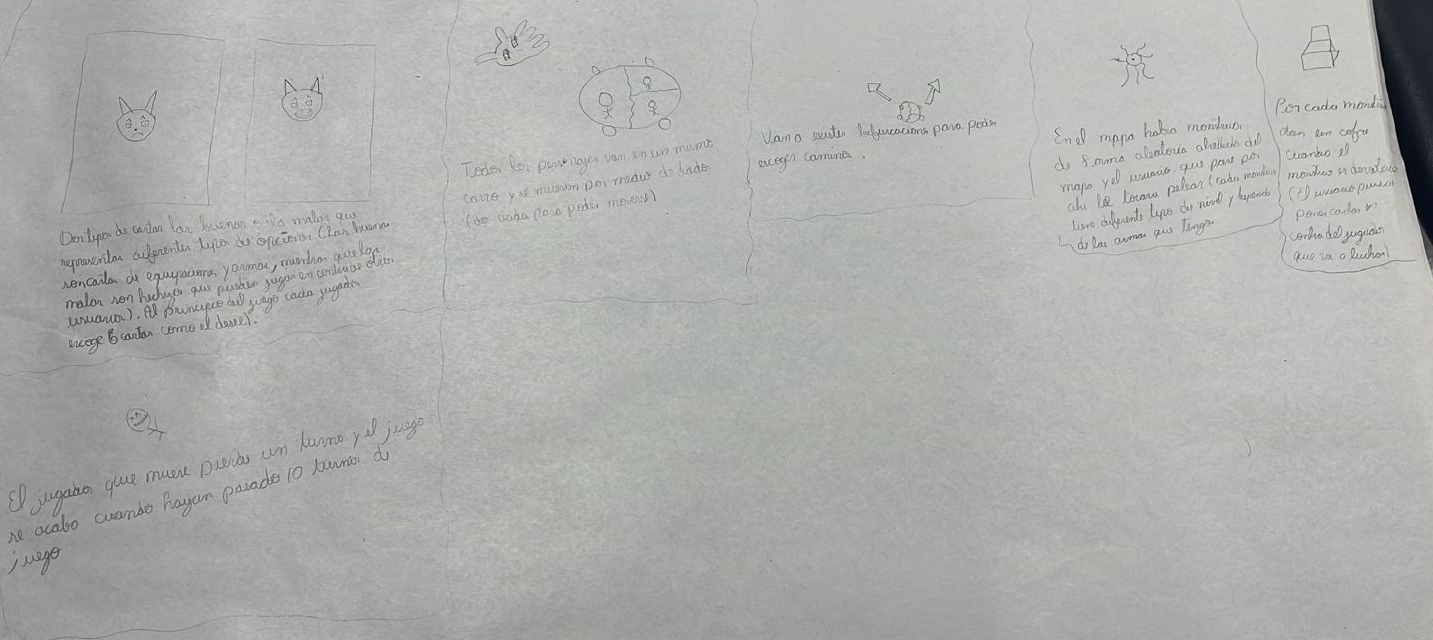 Dos tipos de cartas las buenas o la malas que
representan diferentes tipos de opciones (Las buenas
son cartas de equipaciones y armas, mientras que las
malas son hechizos que pueden jugar en contra de otros
usuarios). Al principio del juego cada jugador
escoge 6 cartas como el desee).
Todos los personajes van en un mismo
carro y se mueven por medio de dados
(do cada para poder moverse)
Van a existir bifurcaciones para poder
escoger caminos.
En el mapa habra monstruos
de forma aleatoria alrededor del
mapa y el usuario que pase por
ahi le tocara pelear (cada monstruo
tiene diferente tipo de nivel y
de las armas que tenga
Por cada monstruo
dan un cofre
cuando el
monstruo es derrotado
(El usuario puede
poner cartas en
contra del jugador
que va a luchar)
El jugador que muere pierde un turno y el juego
se acabo cuando hayan pasado 10 turnos de
juego